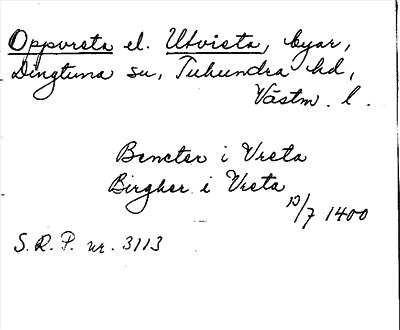 Oppvreta el. Utvreta, byar,
Dingtuna sn, Tuhundra hd,
Västm. l.
Bencter i Vreta
Birgher i Vreta
13/7 1400
S.R.P. nr. 3113